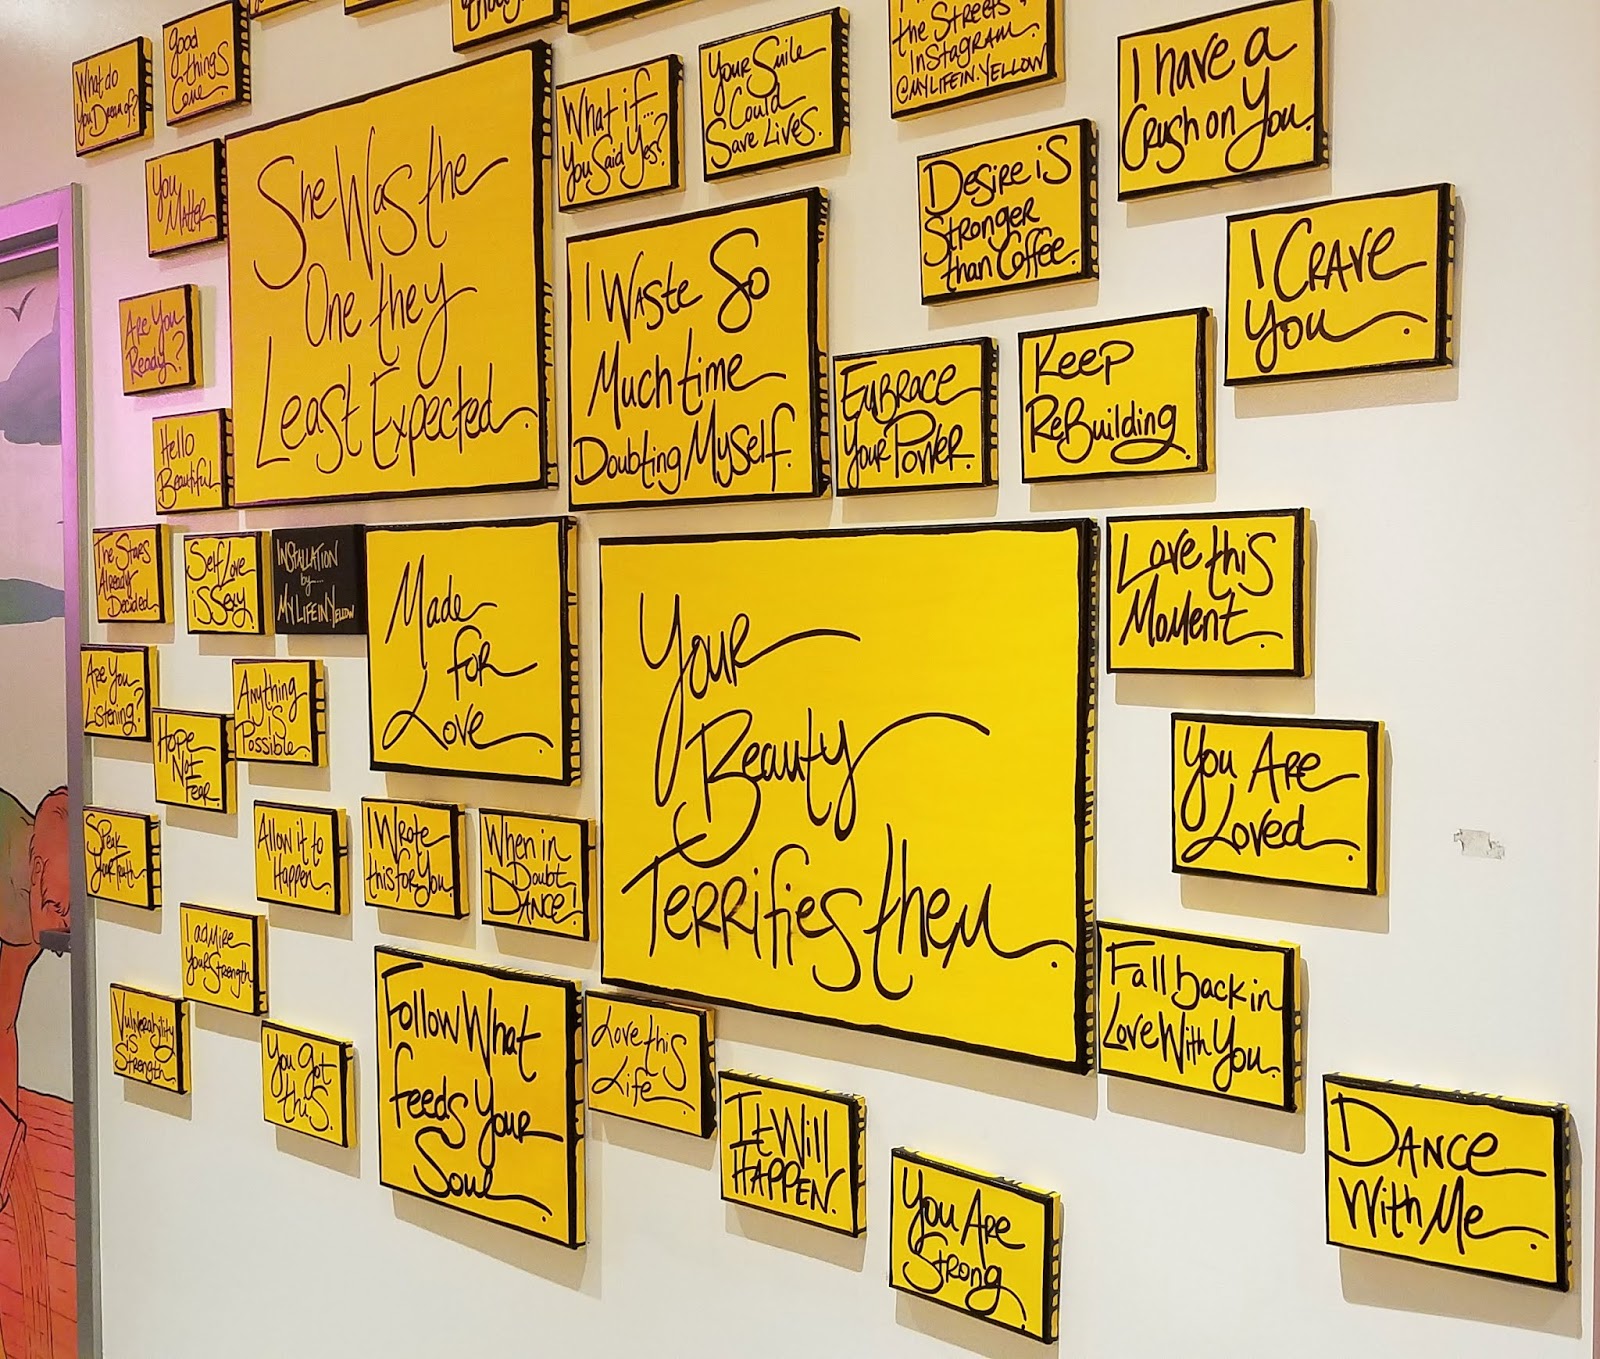 What do
You Dream of?
Good
things
Come.
You
Matter.
Are You
Ready?
Hello
Beautiful.
She Was the
One they
Least Expected.
What if...
You Said Yes?
Your Smile
Could
Save Lives.
the Streets
InStagram
@MYLIFEIN.YELLOW
I have a
Crush on You.
Desire is
Stronger
than Coffee.
I Waste So
Much time
Doubting Myself.
Embrace
Your Power.
Keep
ReBuilding.
I CRAVE
You.
The Stars
Already
Decided.
Self Love
is Sexy.
INSTALLATION
by....
MY LIFE IN YELLOW
Made
for
Love.
Your
Beauty
Terrifies them.
Love this
Moment.
You Are
Loved.
Are You
Listening?
Hope
Not
Fear.
Anything
is
Possible.
Speak
Your Truth.
Allow it to
Happen.
I Wrote
this for You.
When in
Doubt
DANCE!
I admire
Your Strength.
Vulnerability
is
Strength.
You Got
this.
Follow What
feeds Your
Soul.
Love this
Life.
It Will
HAPPEN.
You Are
Strong.
Fall back in
Love With You.
DANCE
With Me.